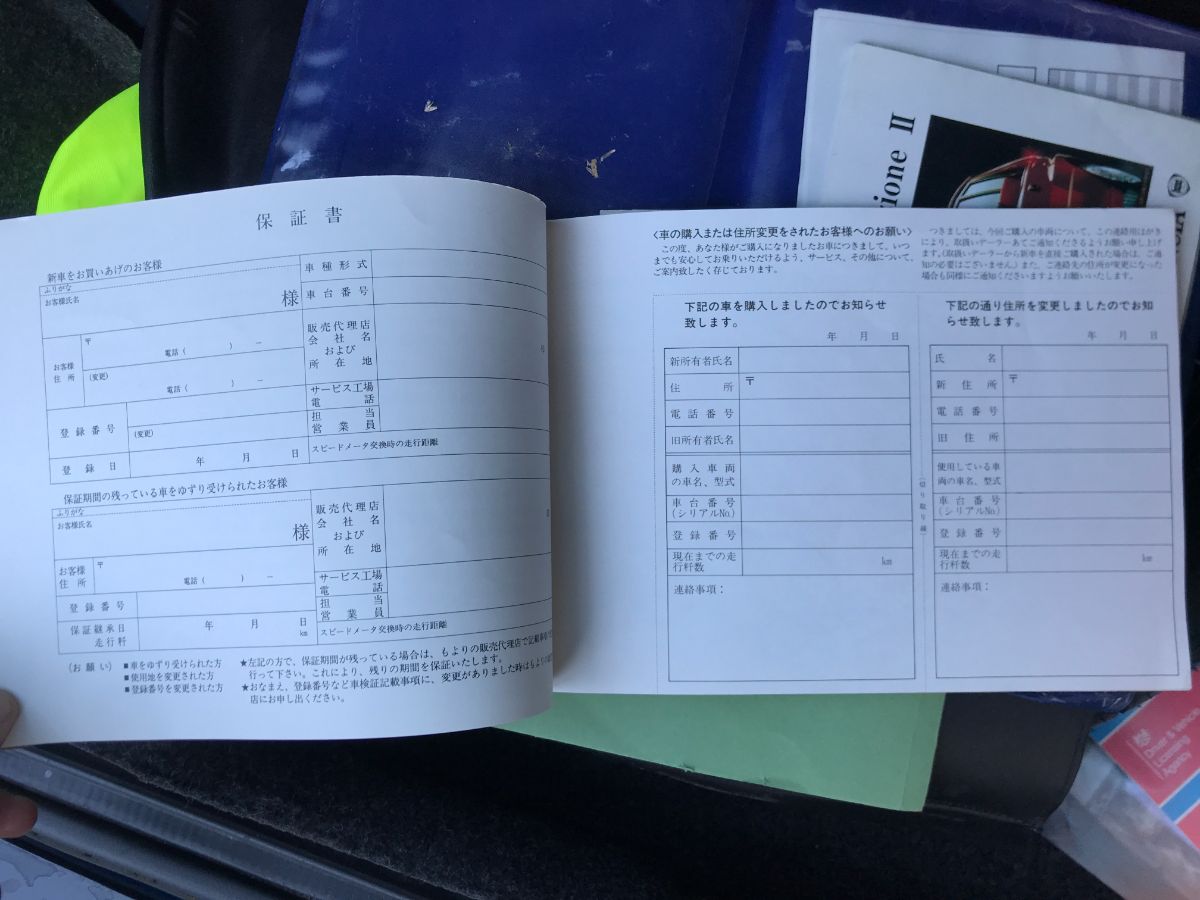 保証書
新車をお買いあげのお客様
ふりがな
お客様氏名
様
お客様
住所
〒
電話（　　　）　－
(変更)
電話（　　　）　－
登録番号
(変更)
登録日
年　月　日
車種形式
車台番号
販売代理店
会社名
および
所在地
サービス工場
電話
担当
営業員
スピードメータ交換時の走行距離
保証期間の残っている車をゆずり受けられたお客様
ふりがな
お客様氏名
様
お客様
住所
〒
電話（　　　）　－
登録番号
保証継承日
走行粁
年　月　日
km
販売代理店
会社名
および
所在地
サービス工場
電話
担当
営業員
スピードメータ交換時の走行距離
(お願い)
■車をゆずり受けられた方
■使用地を変更された方
■登録番号を変更された方
★左記の方で、保証期間が残っている場合は、もよりの販売代理店で記載事
行って下さい。これにより、残りの期間を保証いたします。
★おなまえ、登録番号など車検証記載事項に、変更がありました時はもよりの
店にお申し出ください。
〈車の購入または住所変更をされたお客様へのお願い〉
この度、あなた様がご購入になりましたお車につきまして、いつ
までも安心してお乗りいただけるよう、サービス、その他について、
ご案内致したく存じております。
つきましては、今回ご購入の車両について、この連絡用はがき
により、取扱いディーラーあてご通知くださるようお願い申し上げ
ます。(取扱いディーラーから新車を直接ご購入された場合は、ご通
知の必要はございません。) また、ご連絡先の住所が変更になった
場合も同様にご通知くださいますようお願いいたします。
下記の車を購入しましたのでお知らせ
致します。
年　月　日
新所有者氏名
住所
〒
電話番号
旧所有者氏名
購入車両
の車名、型式
車台番号
(シリアルNo.)
登録番号
現在までの走
行粁数
km
連絡事項：
(切り取り線)
下記の通り住所を変更しましたのでお知
らせ致します。
年　月　日
氏名
新住所
〒
電話番号
旧住所
使用している車
両の車名、型式
車台番号
(シリアルNo.)
登録番号
現在までの走
行粁数
km
連絡事項：
zione II
Driver & Vehicle
Licensing
Agency